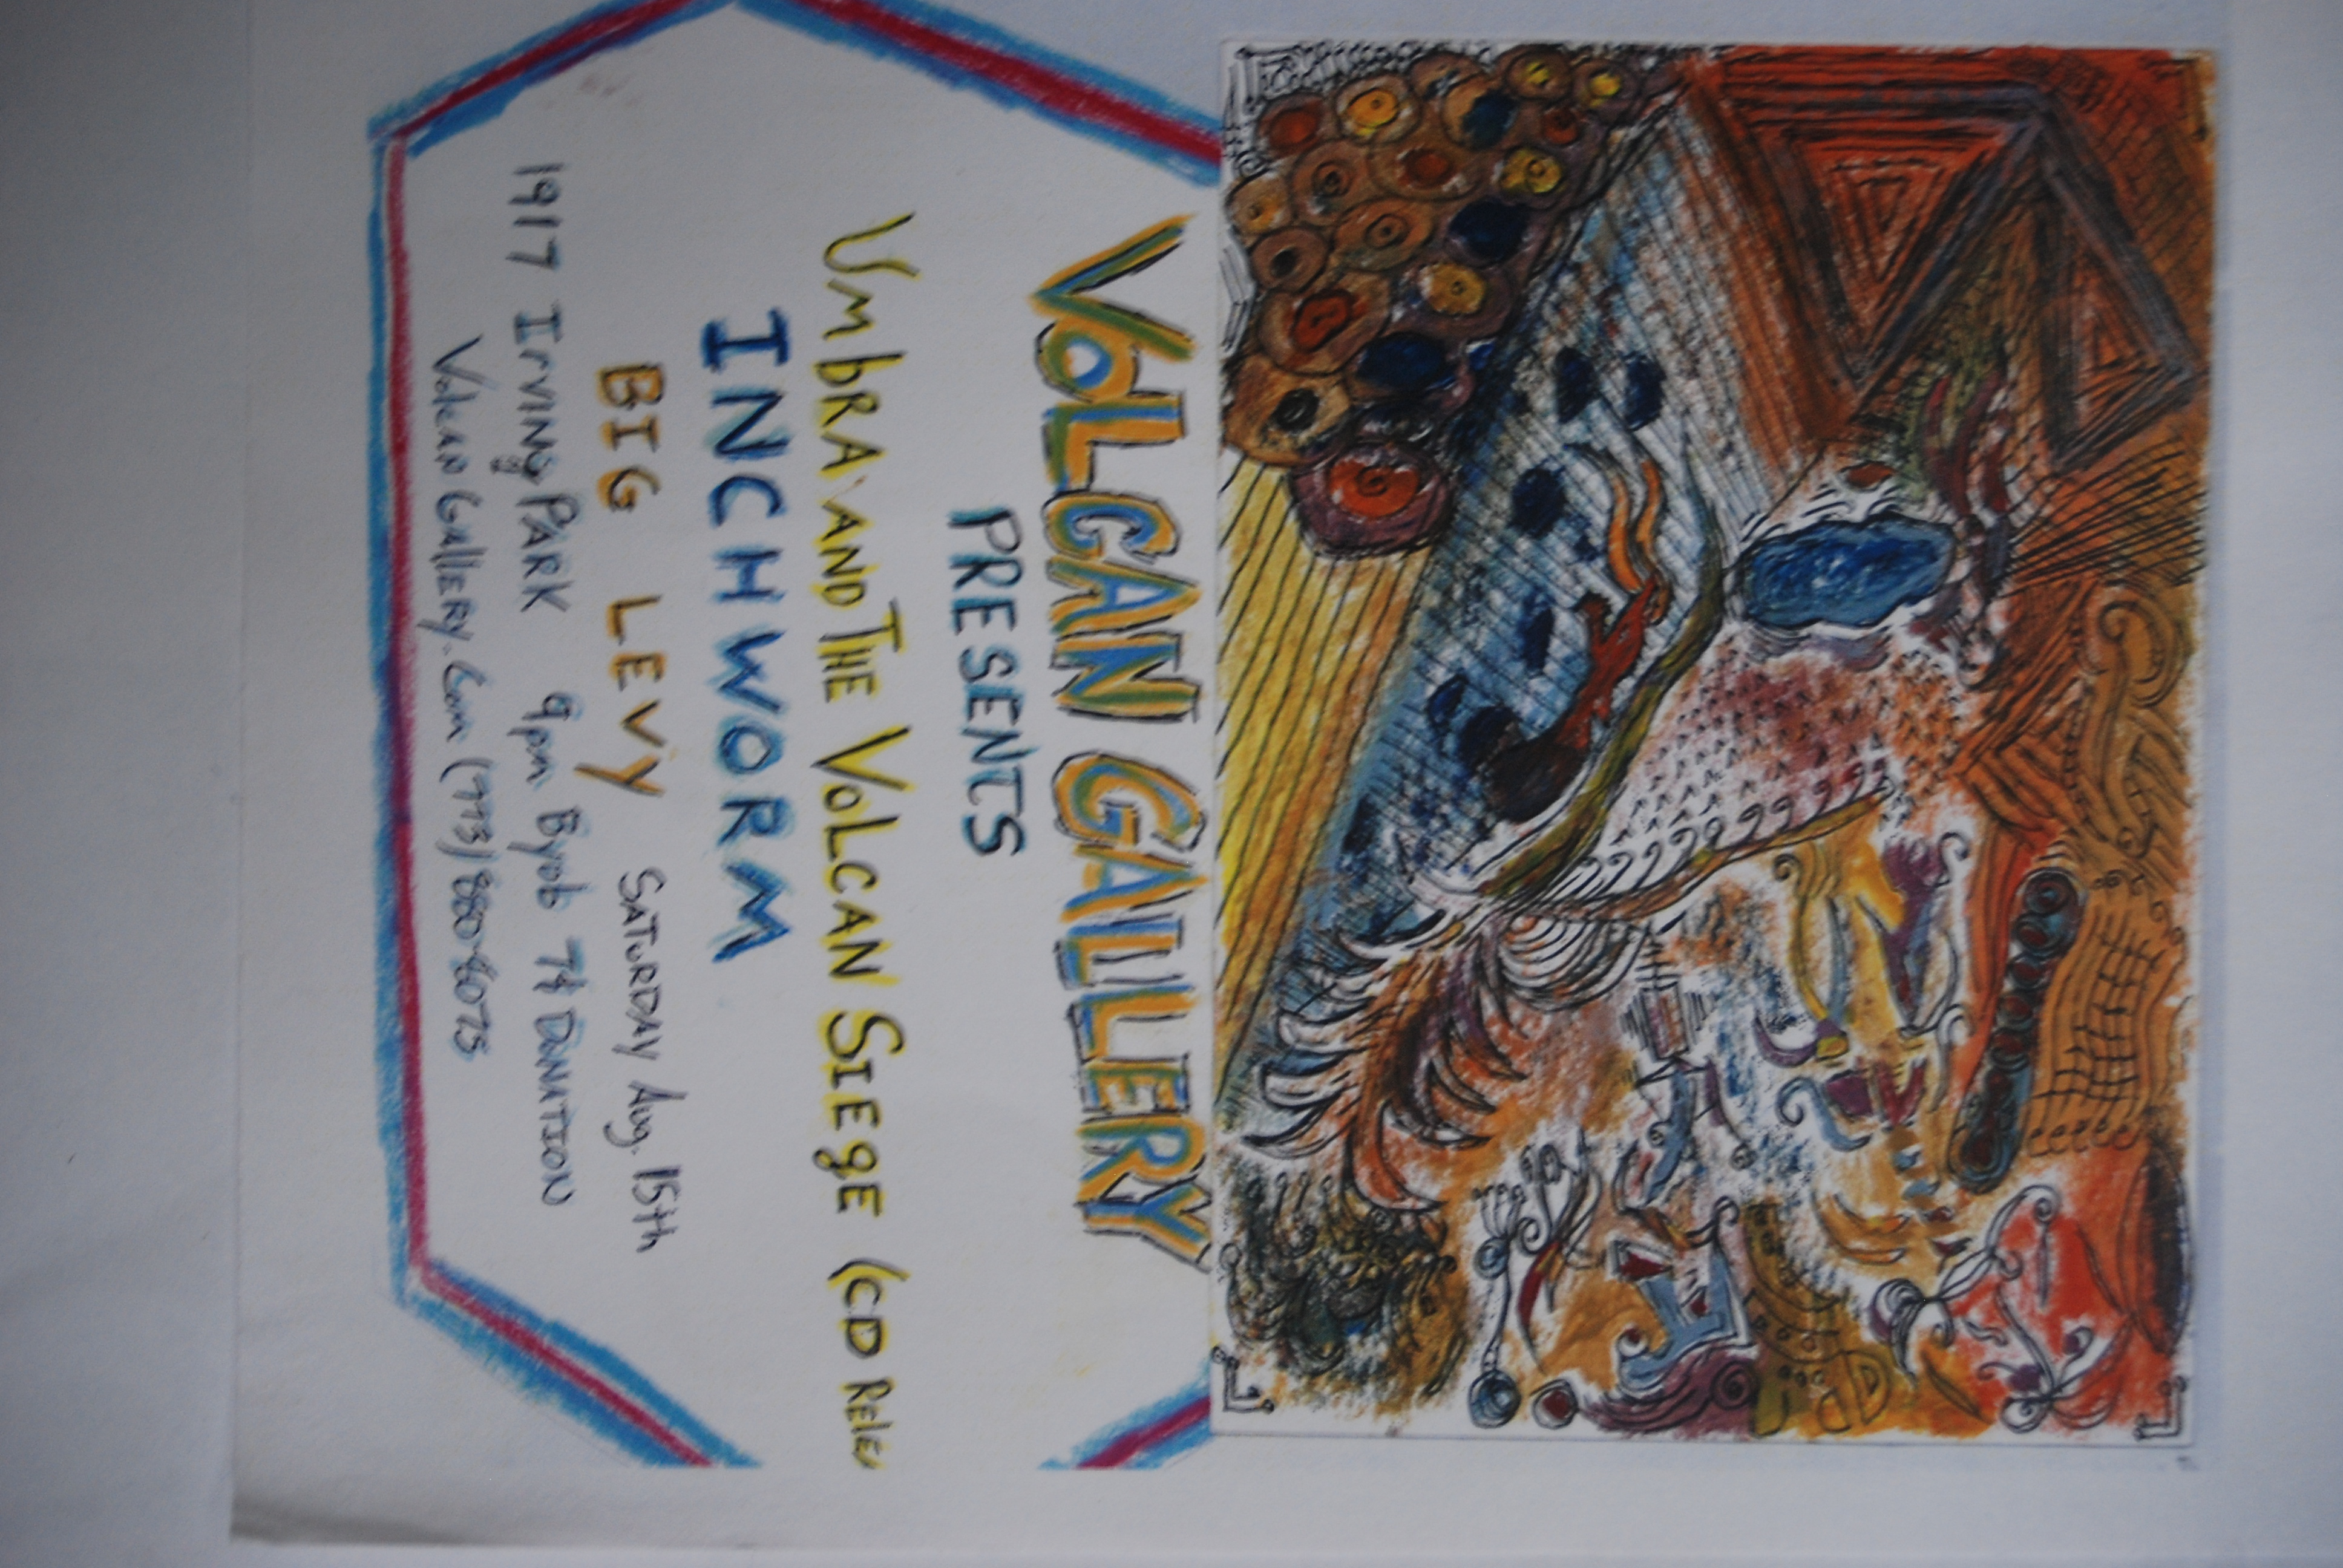 VOLCAN GALLERY
PRESENTS
UmbRA AND THE VOLCAN SIEgE (CD Rele
INCHWORM
BIG LEVY SATURDAY Aug. 15th
1917 IrVING PARK 9pm Byob 7$ DONATION
VolcANGallERy.Com (773)